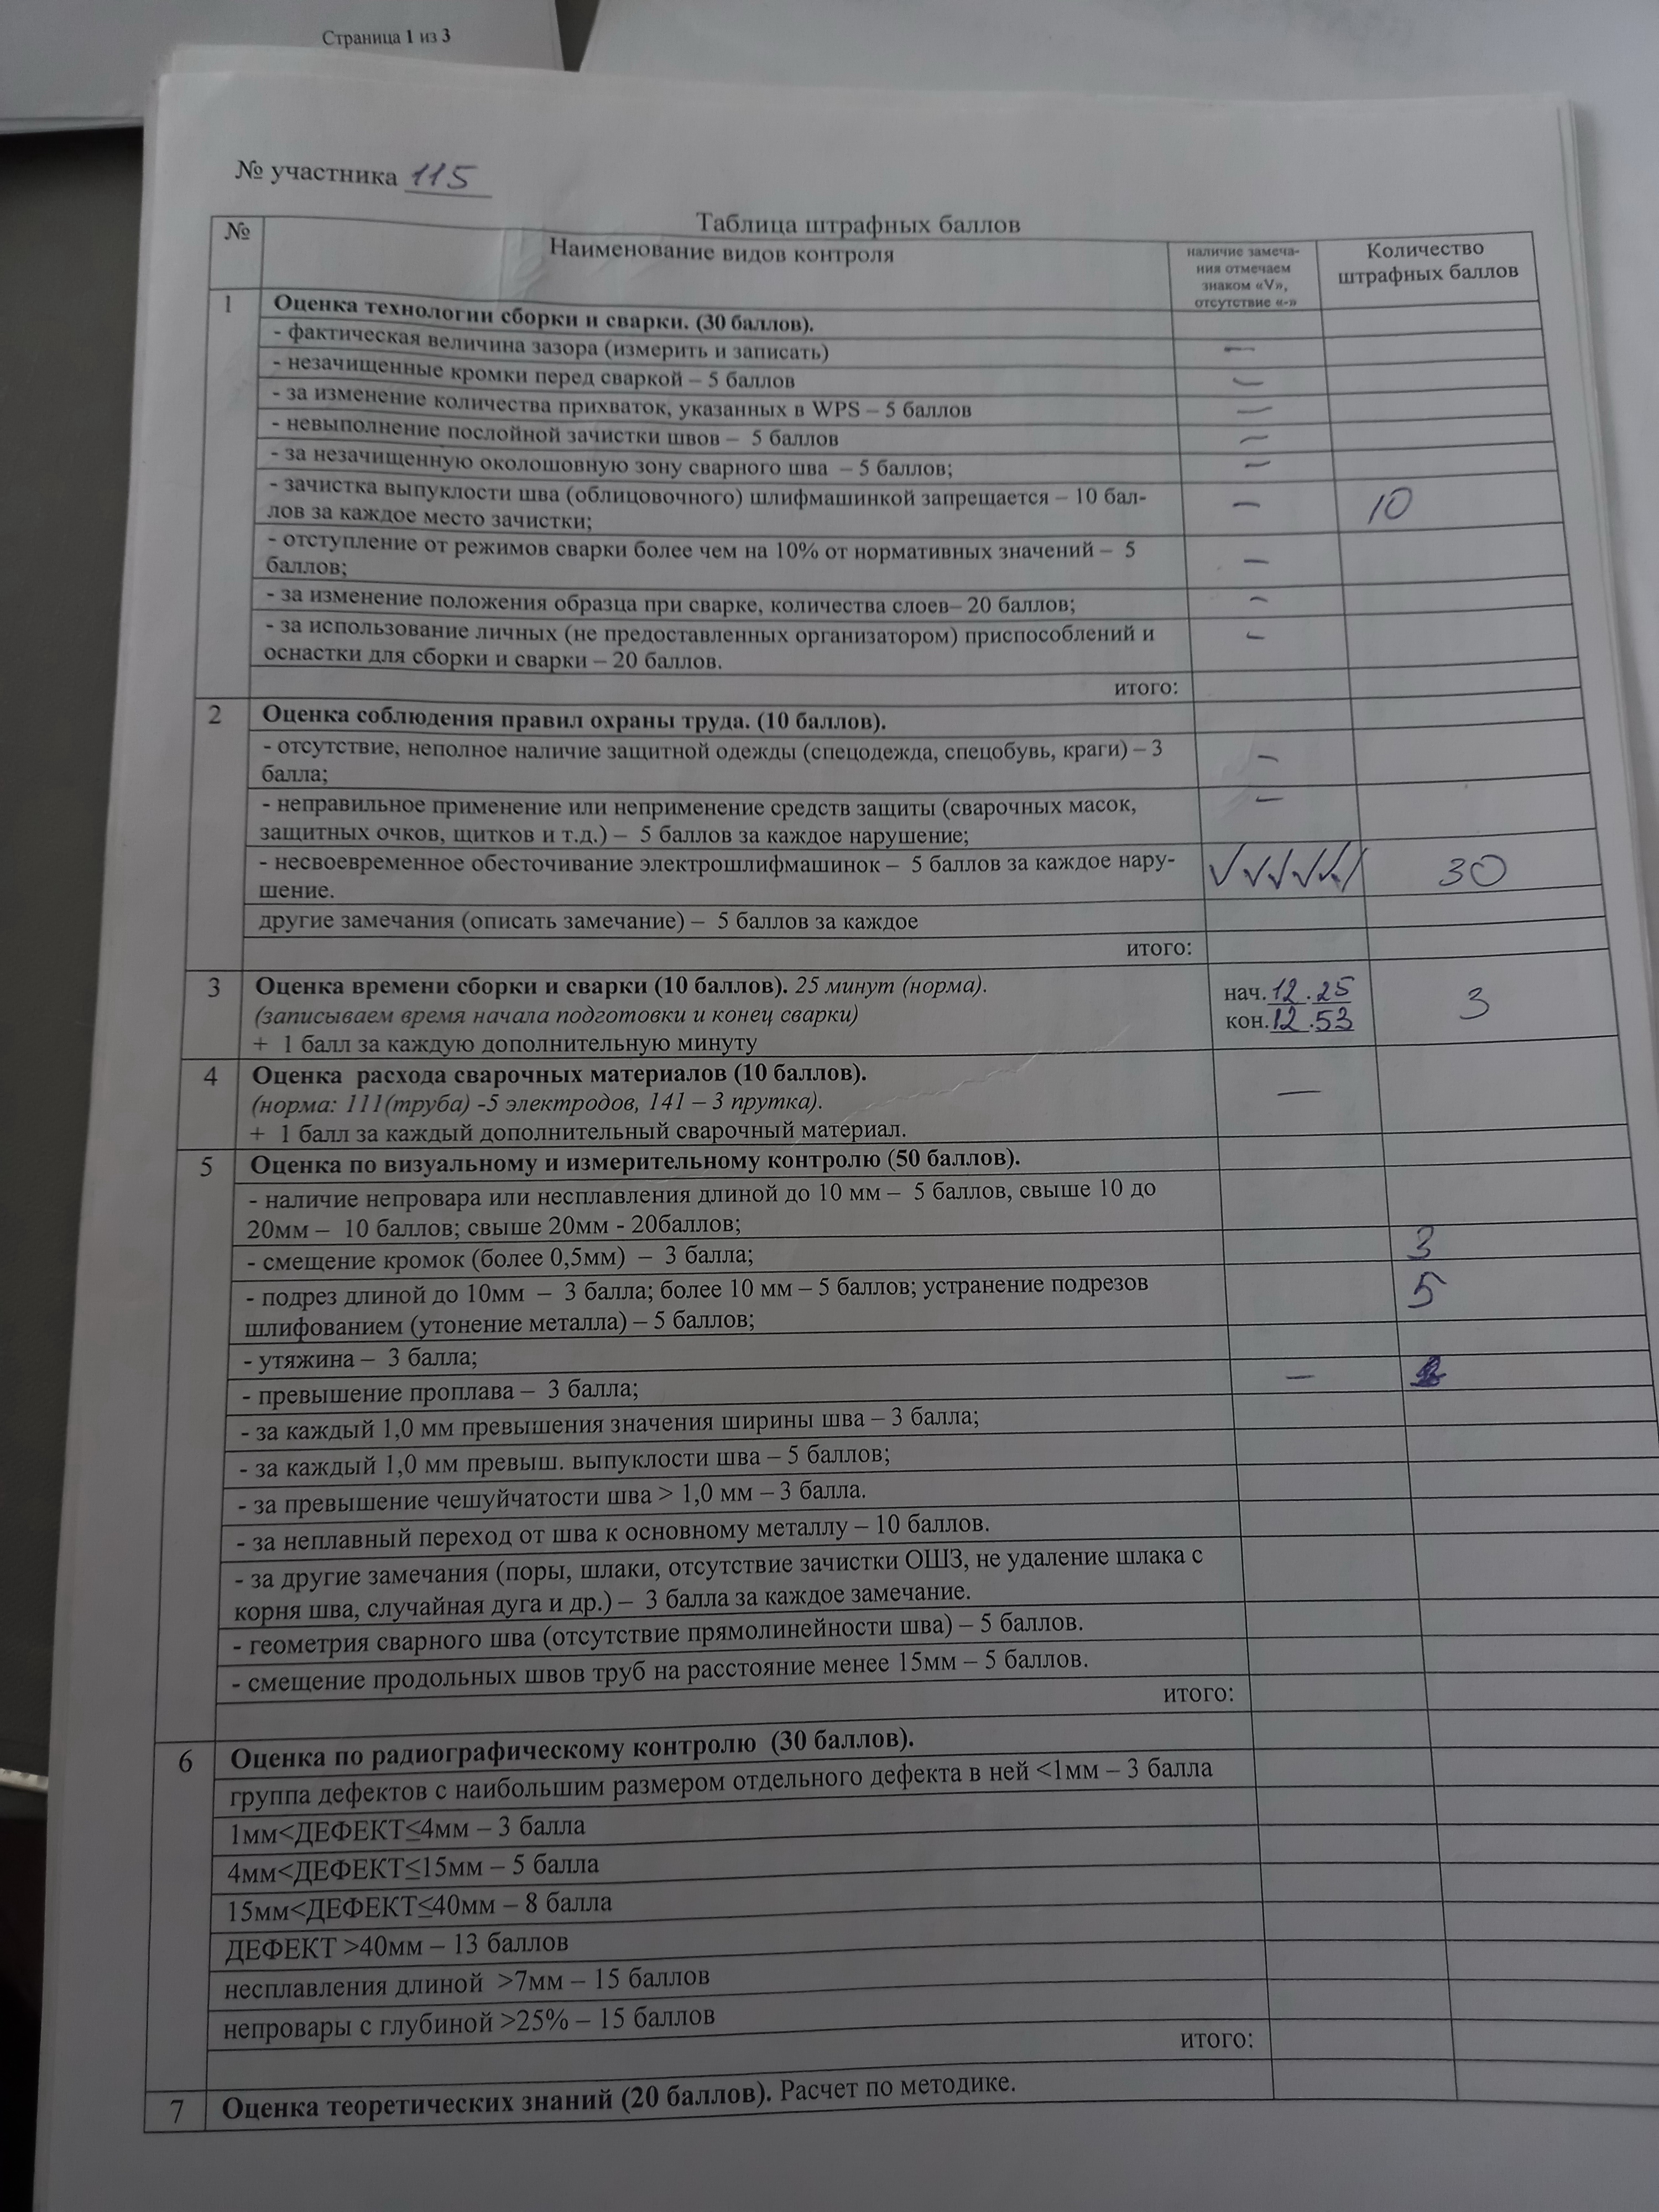 Страница 1 из 3
№ участника 115
Таблица штрафных баллов
№
Наименование видов контроля
наличие замеча-
ния отмечаем
знаком «V»,
отсутствие «-»
Количество
штрафных баллов
1
Оценка технологии сборки и сварки. (30 баллов).
- фактическая величина зазора (измерить и записать) —
- незачищенные кромки перед сваркой – 5 баллов —
- за изменение количества прихваток, указанных в WPS – 5 баллов —
- невыполнение послойной зачистки швов – 5 баллов —
- за незачищенную околошовную зону сварного шва – 5 баллов; —
- зачистка выпуклости шва (облицовочного) шлифмашинкой запрещается – 10 бал-
лов за каждое место зачистки; — 10
- отступление от режимов сварки более чем на 10% от нормативных значений – 5
баллов; —
- за изменение положения образца при сварке, количества слоев– 20 баллов; —
- за использование личных (не предоставленных организатором) приспособлений и
оснастки для сборки и сварки – 20 баллов. —
итого:
2
Оценка соблюдения правил охраны труда. (10 баллов).
- отсутствие, неполное наличие защитной одежды (спецодежда, спецобувь, краги) – 3
балла; —
- неправильное применение или неприменение средств защиты (сварочных масок,
защитных очков, щитков и т.д.) – 5 баллов за каждое нарушение; —
- несвоевременное обесточивание электрошлифмашинок – 5 баллов за каждое нару-
шение. √√√√√√ 30
другие замечания (описать замечание) – 5 баллов за каждое
итого:
3
Оценка времени сборки и сварки (10 баллов). 25 минут (норма).
(записываем время начала подготовки и конец сварки)
+ 1 балл за каждую дополнительную минуту
нач.12.25
кон.12.53
3
4
Оценка расхода сварочных материалов (10 баллов).
(норма: 111(труба) -5 электродов, 141 – 3 прутка).
+ 1 балл за каждый дополнительный сварочный материал.
—
5
Оценка по визуальному и измерительному контролю (50 баллов).
- наличие непровара или несплавления длиной до 10 мм – 5 баллов, свыше 10 до
20мм – 10 баллов; свыше 20мм - 20баллов;
- смещение кромок (более 0,5мм) – 3 балла; 3
- подрез длиной до 10мм – 3 балла; более 10 мм – 5 баллов; устранение подрезов
шлифованием (утонение металла) – 5 баллов; 5
- утяжина – 3 балла;
- превышение проплава – 3 балла; —
- за каждый 1,0 мм превышения значения ширины шва – 3 балла;
- за каждый 1,0 мм превыш. выпуклости шва – 5 баллов;
- за превышение чешуйчатости шва > 1,0 мм – 3 балла.
- за неплавный переход от шва к основному металлу – 10 баллов.
- за другие замечания (поры, шлаки, отсутствие зачистки ОШЗ, не удаление шлака с
корня шва, случайная дуга и др.) – 3 балла за каждое замечание.
- геометрия сварного шва (отсутствие прямолинейности шва) – 5 баллов.
- смещение продольных швов труб на расстояние менее 15мм – 5 баллов.
итого:
6
Оценка по радиографическому контролю (30 баллов).
группа дефектов с наибольшим размером отдельного дефекта в ней <1мм – 3 балла
1мм<ДЕФЕКТ≤4мм – 3 балла
4мм<ДЕФЕКТ≤15мм – 5 балла
15мм<ДЕФЕКТ≤40мм – 8 балла
ДЕФЕКТ >40мм – 13 баллов
несплавления длиной >7мм – 15 баллов
непровары с глубиной >25% – 15 баллов
итого:
7
Оценка теоретических знаний (20 баллов). Расчет по методике.